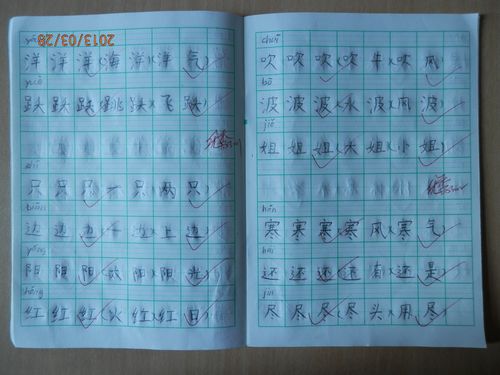 2013/03/28
yáng
洋 洋 洋(海 洋)(洋 气)
yuè
跃 跃 跃(跳 跃)(飞 跃)
只 只 只(一 只)(两 只)
biān
边 边 边( 边)(上 边)
yáng
阳 阳 阳( 阳)(阳 光)
hóng
红 红 红(火 红)(红 日)
chuī
吹 吹 吹(吹 牛)(吹 风)
bō
波 波 波(水 波)(风 波)
jiě
姐 姐 姐(大 姐)(小 姐)
hán
寒 寒 寒(寒 风)(寒 气)
hái
还 还 还(还 有)(还 是)
jìn
尽 尽 尽(尽 头)(用 尽)